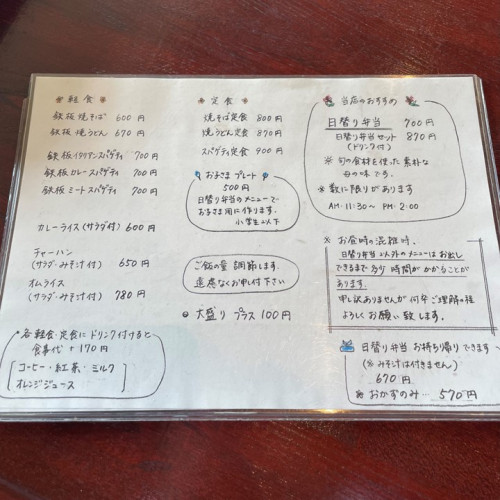 軽食
鉄板焼そば 600円
鉄板焼うどん 670円
鉄板イタリアンスパゲティ 700円
鉄板カレースパゲティ 700円
鉄板ミートスパゲティ 700円
カレーライス(サラダ付) 600円
チャーハン
(サラダ・みそ汁付) 650円
オムライス
(サラダ・みそ汁付) 780円
各軽食・定食にドリンク付けると
食事代 + 170円
コーヒー・紅茶・ミルク
オレンジジュース
定食
焼そば定食 800円
焼うどん定食 870円
スパゲティ定食 900円
お子さまプレート
500円
日替り弁当のメニューで
お子さま用に作ります。
小学生以下
ご飯の量 調節します。
遠慮なくお申付下さい
大盛り プラス 100円
当店のおすすめ
日替り弁当 700円
日替り弁当セット 870円
(ドリンク付)
※ 旬の食材を使った素朴な
母の味です。
※ 数に限りがあります
AM.11:30~ PM.2:00
※ お昼時の混雑時、
日替り弁当以外のメニューはお出し
できるまで多少時間がかかることが
あります。
申し訳ありませんが何卒ご理解の程
よろしくお願い致します。
日替り弁当 お持ち帰りできます
(※みそ汁は付きません)
670円
※ おかずのみ… 570円